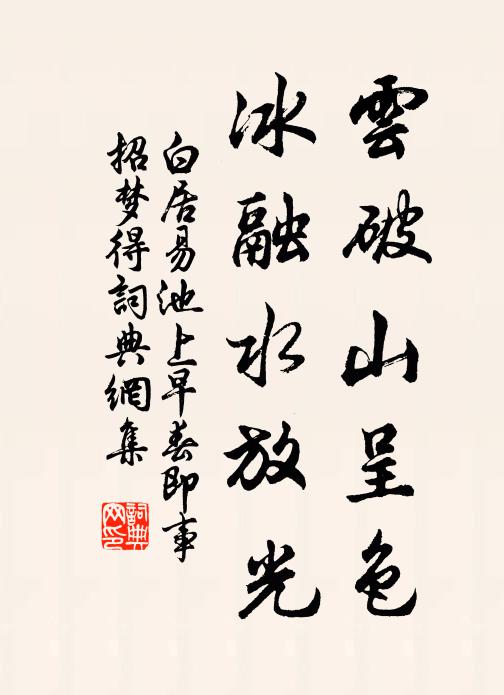 雲破山呈色
冰融水放光
白居易池上早春即事
招梦得詞典網集
詞典
网印